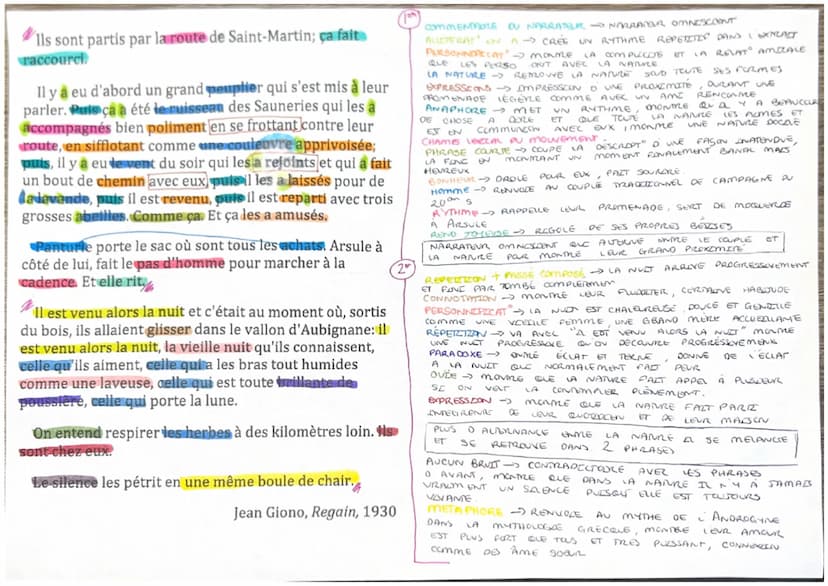 Ils sont partis par la route de Saint-Martin; ça fait
raccourci.
Il y a eu d'abord un grand peuplier qui s'est mis à leur
parler. Puis ça a été le ruisseau des Sauneries qui les a
accompagnés bien poliment en se frottant contre leur
route, en sifflotant comme une couleuvre apprivoisée;
puis, il y a eu le vent du soir qui les a rejoints et qui a fait
un bout de chemin avec eux, puis il les a laissés pour de
la lavande, puis il est revenu, puis il est reparti avec trois
grosses abeilles. Comme ça. Et ça les a amusés.
Panturle porte le sac où sont tous les achats. Arsule à
côté de lui, fait le pas d'homme pour marcher à la
cadence. Et elle rit.
Il est venu alors la nuit et c'était au moment où, sortis
du bois, ils allaient glisser dans le vallon d'Aubignane: il
est venu alors la nuit, la vieille nuit qu'ils connaissent,
celle qu'ils aiment, celle qui a les bras tout humides
comme une laveuse, celle qui est toute brillante de
poussière, celle qui porte la lune.
On entend respirer les herbes à des kilomètres loin. Ils
sont chez eux.
Le silence les pétrit en une même boule de chair.
Jean Giono, Regain, 1930
1er
COMMENTAIRE DU NARRATEUR → NARRATEUR OMNISCIENT
EN A → CRÉE UN RYTHME REPETITIF DANS L'EXTRAIT
→ MONTRE LA COMPLICITE ET LA AMICALE
QUE LES PERSO ONT AVEC LA NATURE
LA NATURE → RETROUVE LA NATURE SOUS TOUTE SES FORMES
EXPRESSIONS → IMPRESSION D UNE PROXIMITE, DURANT UNE
PROMENADE LÉGÈRE COMME AVEC UN AMI RENCONTRE
ANAPHORE → MET UN RYTHME, MONTRE QU IL Y A BEAUCOUP
DE CHOSE A DIRE ET QUE TOUTE LA NATURE LES
EST EN COMMUNION AVEC EUX, MONTRE UNE NATURE DOUCE
DU MOUVEMENT
PHRASE COURTE → COUPE LA D'UNE FAÇON INATTENDUE,
LA FINIE EN MONTRANT UN MOMENT FINALEMENT BANAL MAIS
HEUREUX
BONHEUR → DROLE POUR EUX, FAIT SOURIRE
HOMME → RENVOIE AU COUPLE TRADITIONNEL DE CAMPAGNE DU
20em S
RYTHME → RAPPELLE LEUR PROMENADE, SERT DE MOQUERIE
A ARSULE
→ RIGOLE DE SES PROPRES BÊTISES
NARRATEUR OMNISCIENT QUI ALTERNE ENTRE LE COUPLE ET
LA NATURE POUR MONTRE LEUR GRAND PROXIMITÉ
2e
REPETITION + PASSÉ COMPOSÉ → LA NUIT ARRIVE PROGRESSIVEMENT
ET FINI PAR TOMBÉ COMPLETEMENT
CONNOTATION → MONTRE LEUR HABITUDE
→ LA NUIT EST CHALEUREUSE, DOUCE ET GENTILLE
COMME UNE VIEILLE FEMME, UNE GRAND MÈRE ACCUEILLANTE
RÉPÉTITION → VA AVEC "IL EST VENU ALORS LA NUIT" MONTRE
UNE NUIT PROGRESSIVE QU'ON DÉCOUVRE PROGRESSIVEMENT
PARADOXE → ENTRE ÉCLAT ET TERNE, DONNE DE L'ÉCLAT
A LA NUIT QUI NORMALEMENT FAIT PEUR
OUÏE → MONTRE QUE LA NATURE FAIT APPEL À PLUSIEUR
SI ON VEUT LA CONTEMPLER PLEINEMENT.
EXPRESSION → MONTRE QUE LA NATURE FAIT PARTI
DE LEUR QUOTIDIEN ET DE LEUR MAISON
PLUS D ALTERNANCE ENTRE LA NATURE SE MÉLANGE
ET SE RETROUVE DANS 2 PHRASES
AUCUN BRUIT → CONTRADICTOIRE AVEC LES PHRASES
D AVANT, MONTRE QUE DANS LA NATURE IL N'Y A JAMAIS
VRAIMENT UN SILENCE PUISQU ELLE EST TOUJOURS
VIVANTE
METAPHORE → RENVOIE AU MYTHE DE L'ANDROGYNE
DANS LA MYTHOLOGIE GRECQUE, MONTRE LEUR AMOUR
EST PLUS FORT QUE TOUS ET TRES PUISSANT, CONNEXION
COMME DES ÂME SOEUR